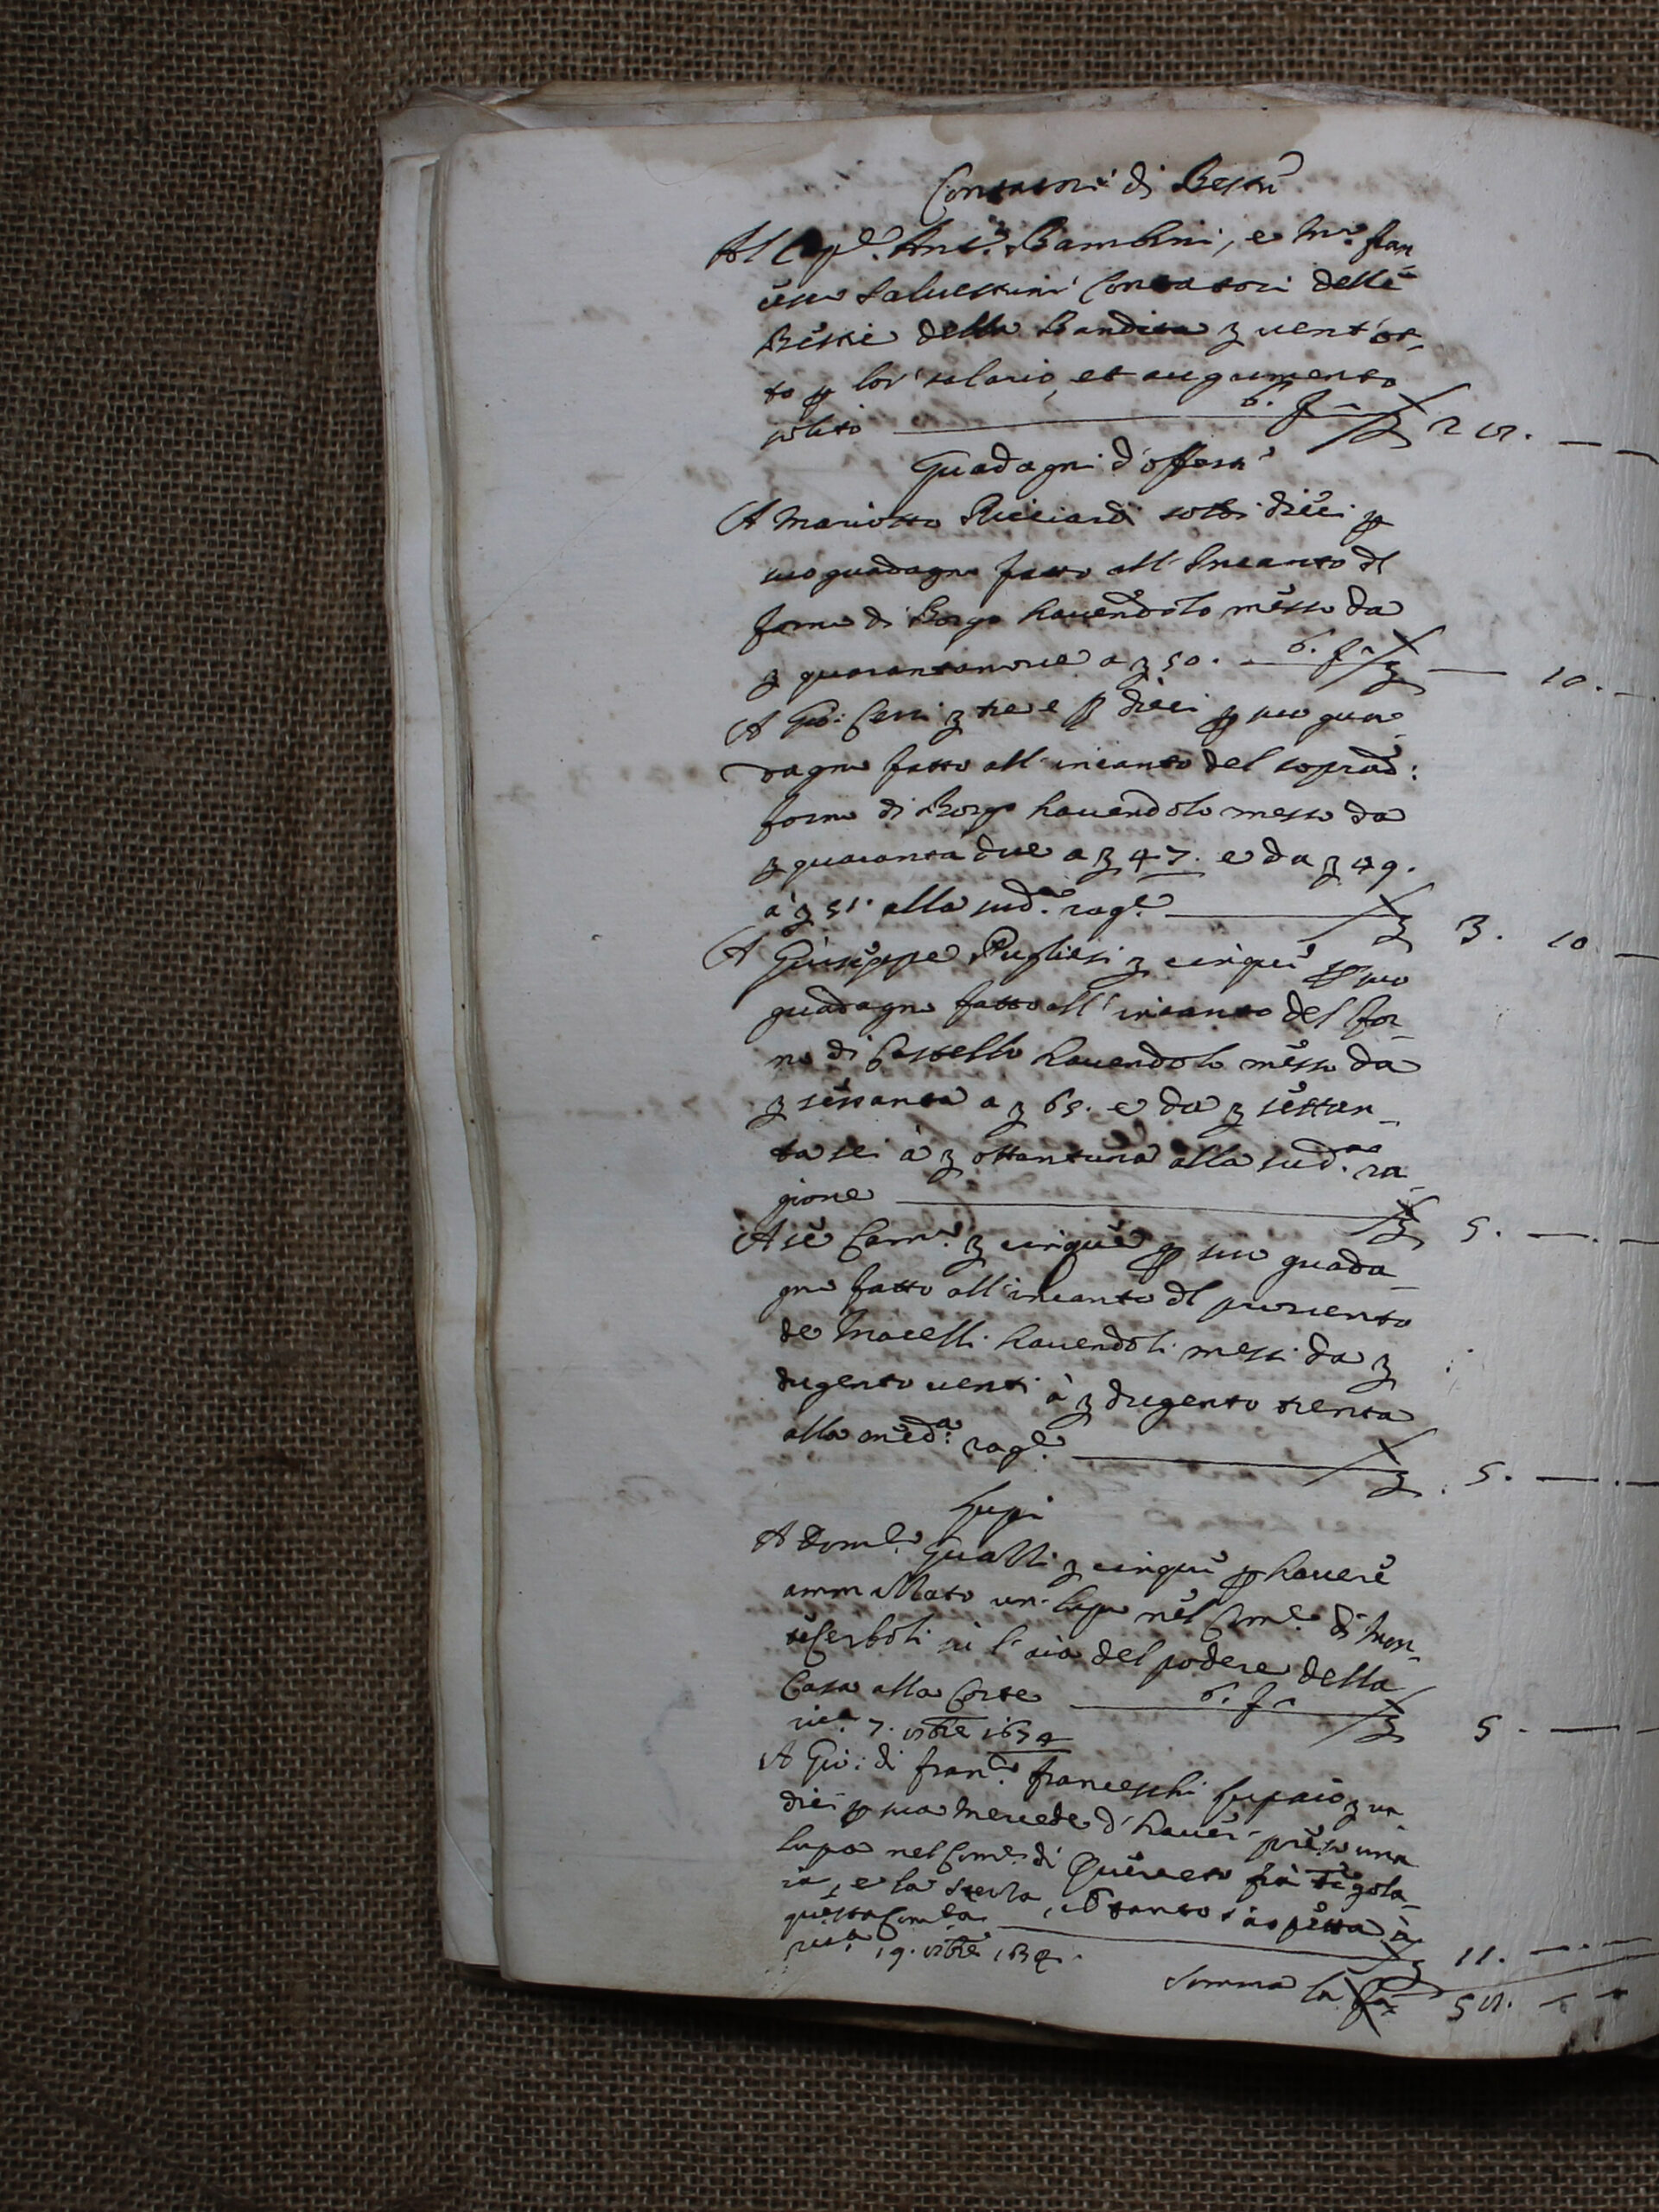 Contatori di Besti
Al Cap.o Ant.o Bambini, e M.r Fran
cesco Saluestrini Contatori delle
Bestie della Bandita ʒ uent'ot-
to p lor' salario, et augumento
solito ʒ 28. —
Guadagni d'offerte
A Mariotto Ricciardi soldi dieci p
suo guadagno fatto all'Incanto dl
forno di Borgo hauendolo messo da
ʒ quarantanoue a ʒ 50. ʒ — 10. —
A Gio: Cerri ʒ tre e ß dieci p suo gua-
dagno fatto all'incanto del soprad:
forno di Borgo hauendolo messo da
ʒ quaranta due a ʒ 47. e da ʒ 49.
à ʒ 51. alla sud.a rag.e ʒ 3. 10 —
A Giuseppe Pugliesi ʒ cinque p suo
guadagno fatto all'incanto del for-
no di Castello hauendolo messo da
ʒ sessanta a ʒ 65. e da ʒ settan-
ta sei à ʒ ottantuna alla sud.a ra-
gione ʒ 5. — . —
A sè Cam.o ʒ cinque p suo guada-
gno fatto all'incanto dl prouento
de Macelli hauendoli messi da ʒ
dugento uenti à ʒ dugento trenta
alla med:a rag.e ʒ 5. — . —
Lupi
A Dom.o Gualti ʒ cinque p hauere
ammazzato un lupo nel Com.e di Mon-
teCerboli sù l'aia del podere della
Casa alla Corte ʒ 5 - — -
ric.a 7. 8bre 1634
A Gio: di Fran.o Franceschi lupaio ʒ un
dici p sua mercede d'hauer' preso una
lupa nel Com.e di Querceto frà
e la Sterza, et tanto s'aspetta à
questa Com.tà ʒ 11. — . —
ric.a 19. 8bre 1634.
Somma la fa. 58. - -